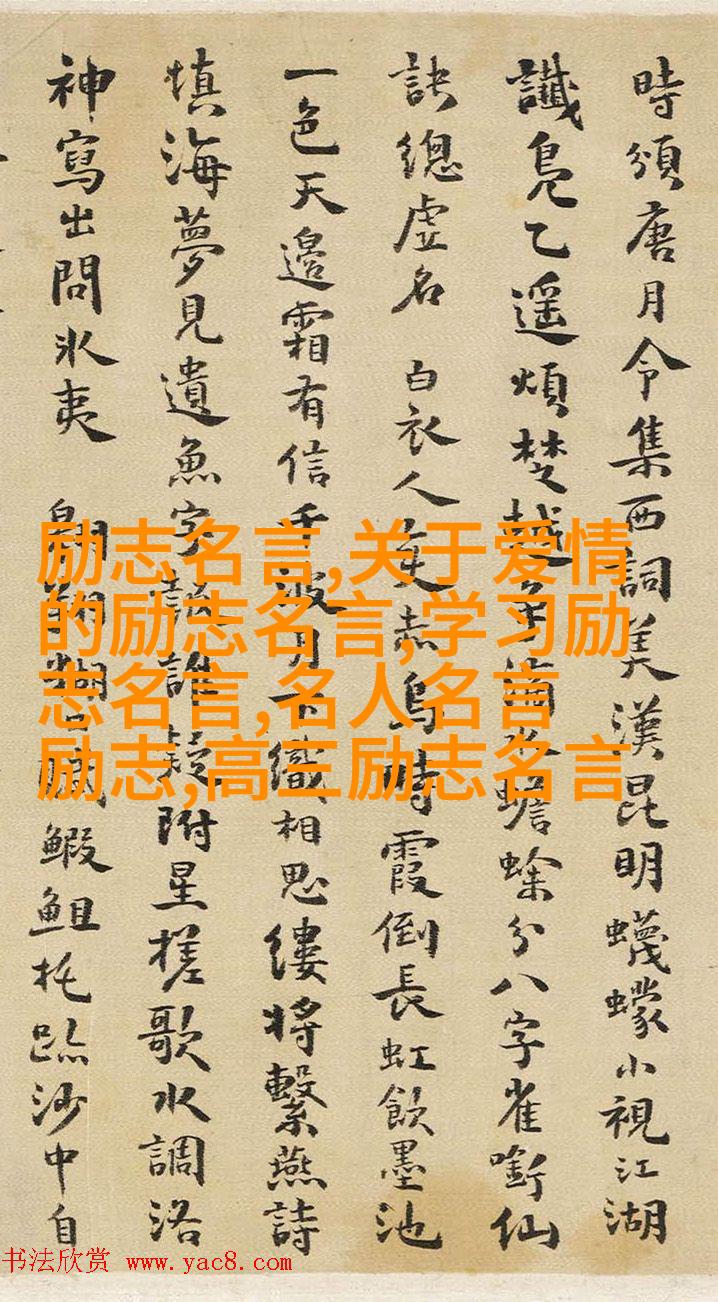 時頒唐月令集西詞美漢昆明蠛蠓小視江湖
讖鳧乙遥煩楚越蟾蜍分八字雀銜仙
訣總虚名 白衣人走赤烏時霞倒長虹飲墨池
一色天邊霜有信千波月下織相思縷將繫燕詩
填海夢見遺魚字誰疑附星槎歌水調洛
神寫出問冰夷 翱翔賦鰕鮔托跡沙中自
励志名言,关于爱情
的励志名言,学习励
志名言,名人名言
励志,高三励志名言
书法欣赏 www.yac8.com